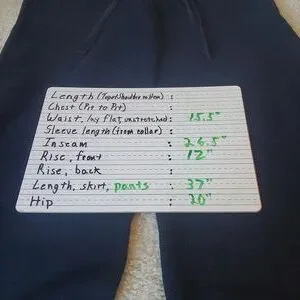 Length (Top of Shoulder to Hem) :
Chest (Pit to Pit) :
Waist, lay flat, unstretched : 15.5"
Sleeve length (from collar) :
Inseam : 26.5"
Rise, front : 12"
Rise, back :
Length, skirt, pants : 37"
Hip : 20"